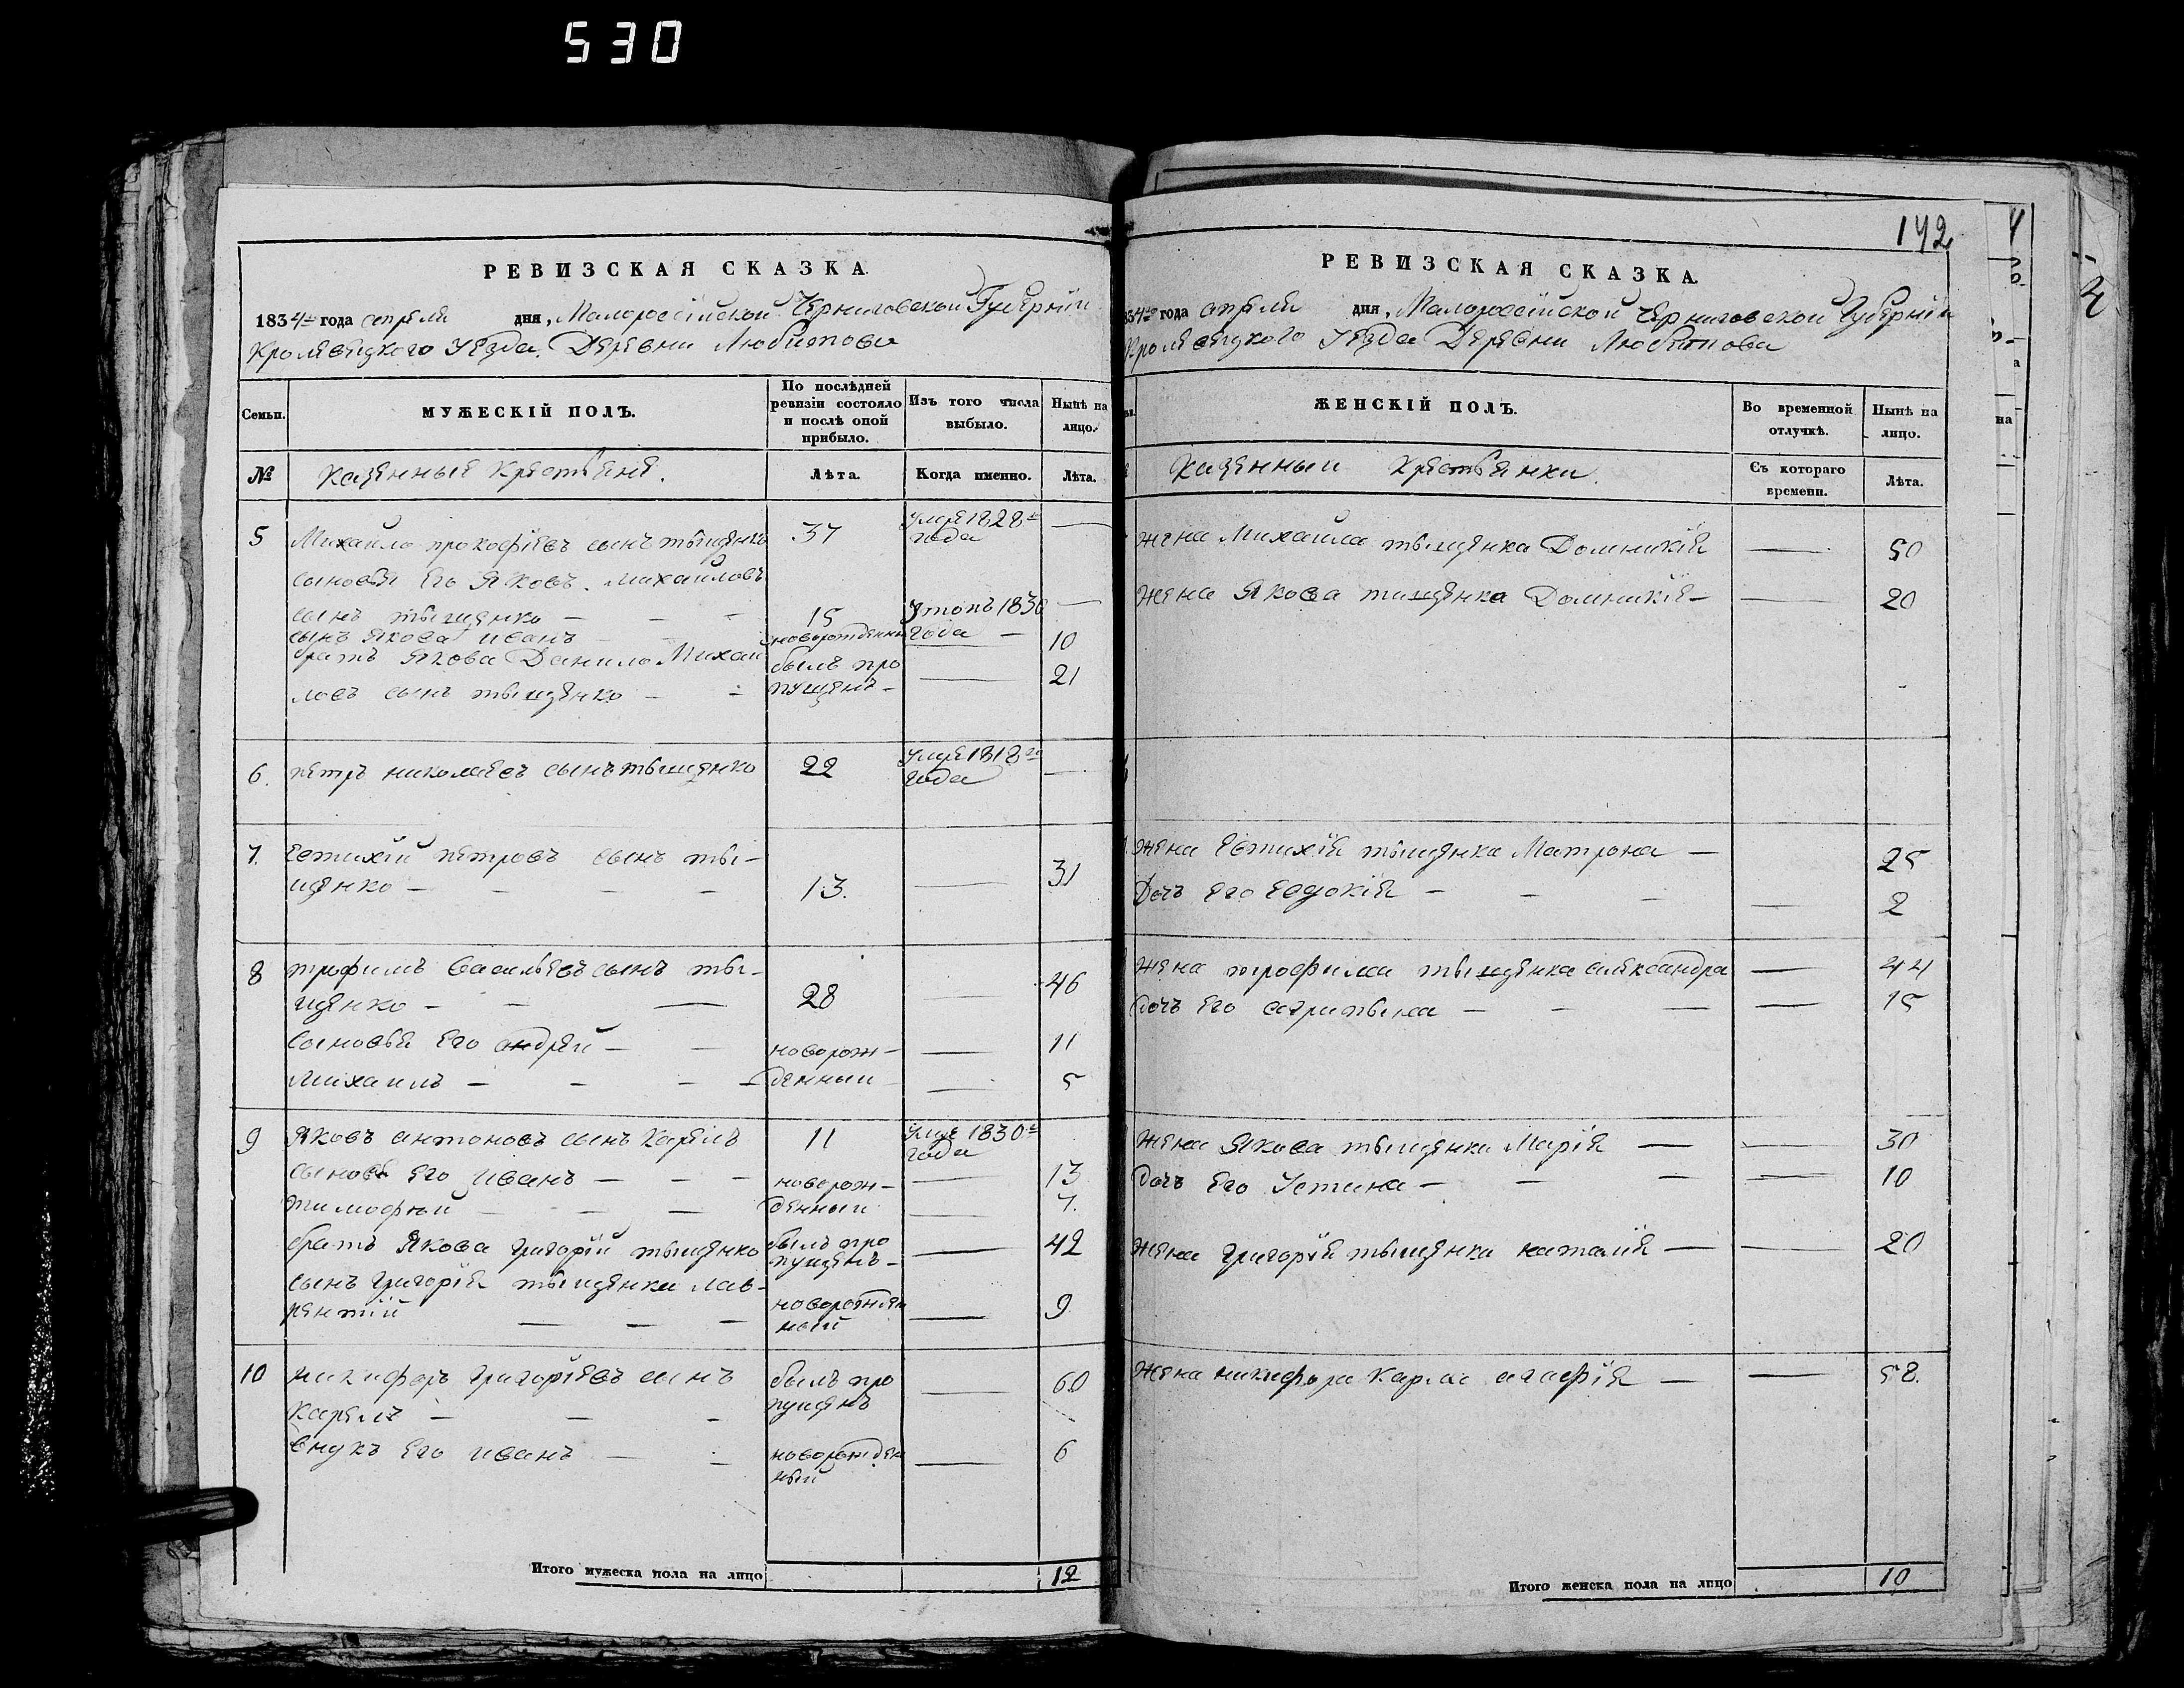 530
РЕВИЗСКАЯ СКАЗКА.
1834го года апреля дня, Малороссійской Черниговской Губерніи
Кролевецкого Уезда, Деревни Любитова
Семьи.
МУЖЕСКІЙ ПОЛЪ.
По послѣдней ревизіи состояло и послѣ оной прибыло.
Изъ того числа выбыло.
Нынѣ на лицо.
№ Казенные Крестьяне. Лѣта. Когда именно. Лѣта.
5 Михайло прокофіевъ сынъ тыщенко 37 умре 1828го года —
сыновья Его Яковъ Михаиловъ
сынъ тыщенко — — — 15 Утопъ 1830 года —
сынъ Якова иванъ новорожденны 10
братъ Якова Данило Михаи
ловъ сынъ тыщенко — — былъ про пущенъ — — 21
6. петръ николаевъ сынъ тыщенко 22 умре 1818го года —
7. Евтихій петровъ сынъ ты-
щенко — — — — 13. — 31
8 трофимъ васильевъ сынъ ты-
щенко — — — 28 — 46
Сыновья Его андрей — — новорож- — 11
Михаилъ — — — — денныи — 5
9 Яковъ антоновъ сынъ Карелъ 11 умре 1830го года
сыновь Его Иванъ — — — новорож- — 13
тимофеи — — — денныи — 7.
братъ Якова григорій тыщенко былъ про пущенъ — — 42
сынъ григорія тыщенка лав-
рентій — — — новорожден ный — 9
10 никифоръ григоріевъ сынъ былъ про пущенъ — 60
Карелъ — — —
внукъ Его иванъ — — новорожден ный — 6
Итого мужеска пола на лицо 12
142
РЕВИЗСКАЯ СКАЗКА.
34го года апрели дня, Малороссійской Черниговской Губерніи
Кролевецкого Уезда Деревни Любитова
ЖЕНСКІЙ ПОЛЪ.
Во временной отлучкѣ.
Нынѣ на лицо.
Казенныи Крестьянки. Съ котораго времени. Лѣта.
жена Михаила тыщенка Домникія — 50
жена Якова тищенка Домникія — — 20
жена Евтихія тыщенка Матрона — 25
Дочъ Его Евдокія — — — — 2
жена трофима тыщенка александра — 44
дочъ Его — — — — 15
жена Якова тыщенка Марія — — 30
дочъ Его Устина — — — — 10
жена григорія тыщенка наталія — — 20
жена никифора Карла агафія — — 58.
Итого женска пола на лицо 10